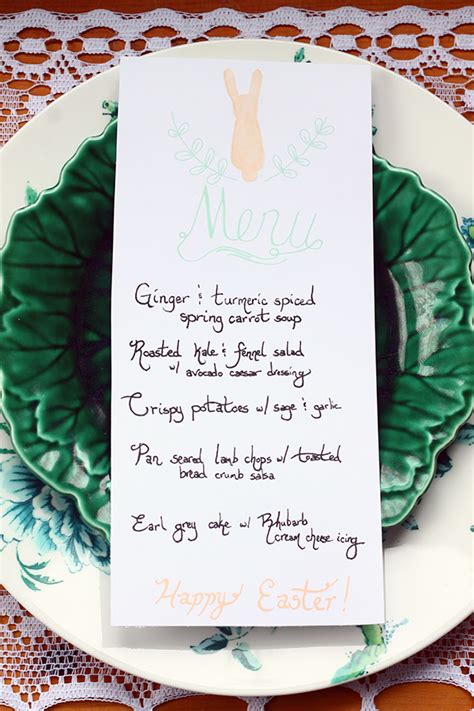 Menu
Ginger & turmeric spiced
spring carrot soup
Roasted Kale & fennel salad
w/ avocado caesar dressing
Crispy potatoes w/ sage & garlic
Pan seared lamb chops w/ toasted
bread crumb salsa
Earl grey cake w/ Rhubarb
cream cheese icing
Happy Easter!